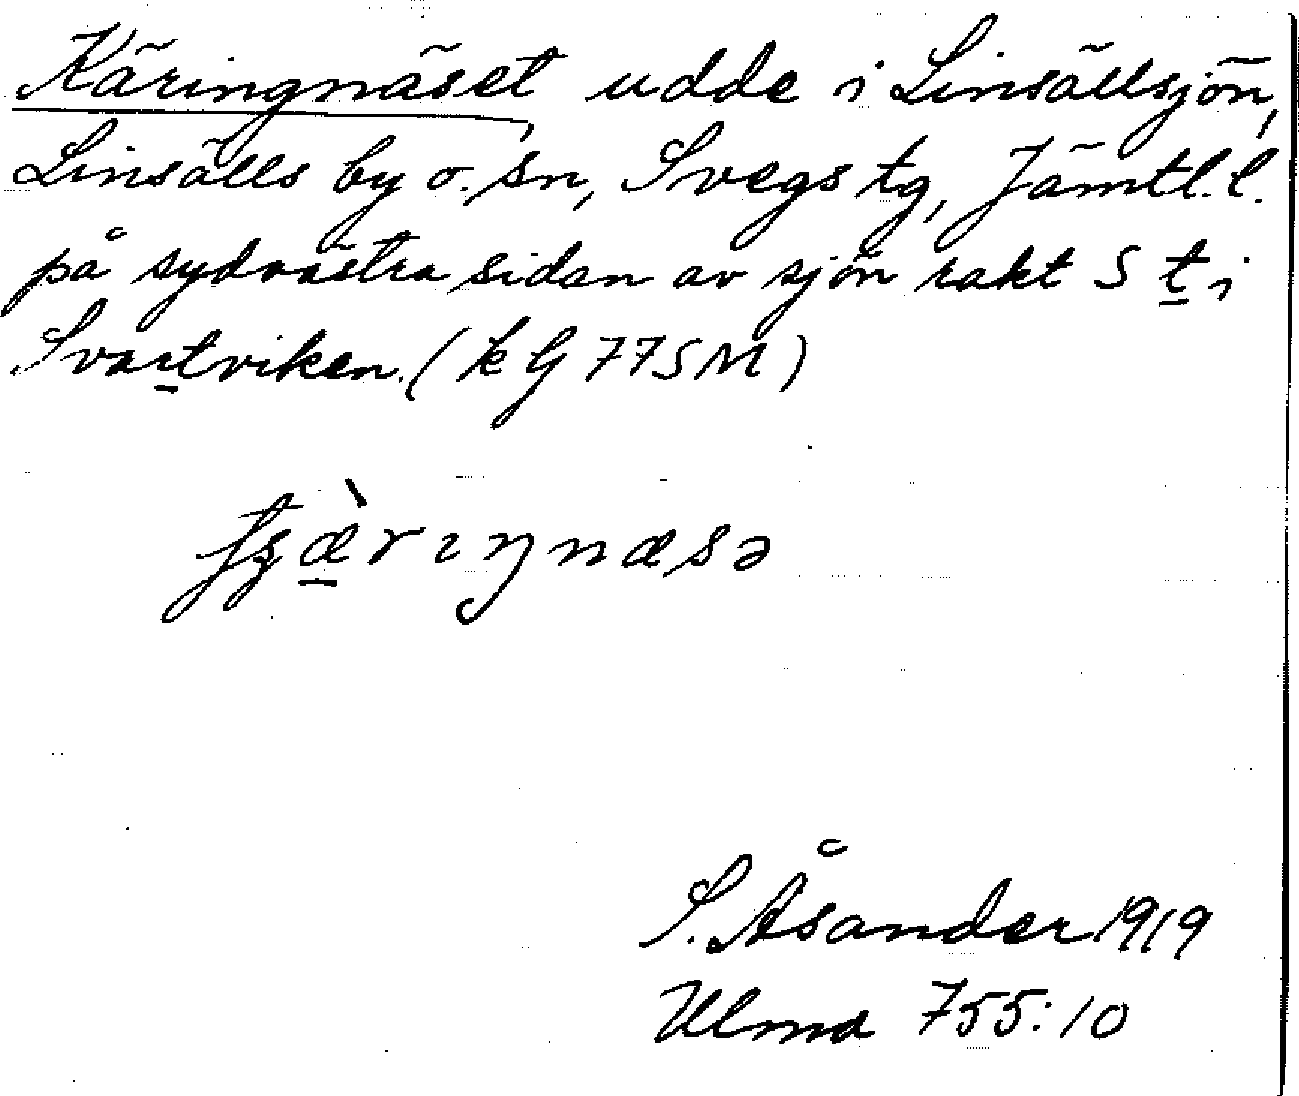 Käringnäset, udde i Linsällsjön,
Linsälls by o. sn, Svegs tg, Jämtl. l.
på sydvästra sidan av sjön rakt S t i
Svartviken. (k G 77 S M)
S. Åsander 1919
Ulma 755:10